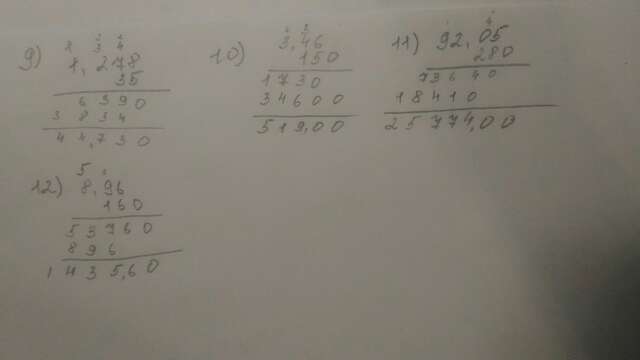 9) 1,278
35
6390
3834
44,730
10) 3,46
150
1730
34600
519,00
11) 92,05
280
73640
18410
25774,00
12) 8,96
160
53760
896
1435,60